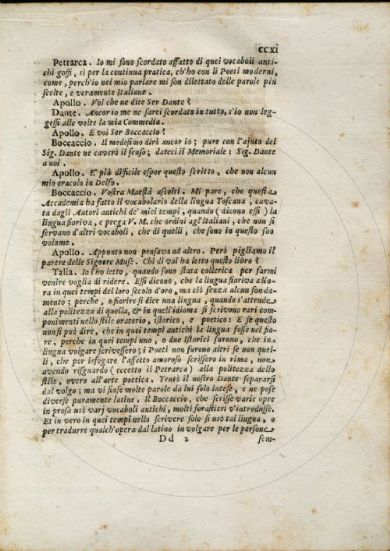 ccxi
Petrarca. Io mi sono scordato affatto di quei vocaboli anti-
chi goffi, sì per la continua pratica, ch'ho con li Poeti moderni,
come, perch'io nel mio parlare mi son dilettato delle parole più
scelte, e veramente Italiane.
Apollo. Voi che ne dite Ser Dante?
Dante. Ancor io me ne sarei scordato in tutto, s'io non leg-
gessi alle volte la mia Commedia.
Apollo. E voi Ser Boccaccio?
Boccaccio. Il medesimo dirò ancor io; pure con l'ajuto del
Sig. Dante ne caverò il senso; dateci il Memoriale; Sig. Dante
a noi.
Apollo. E' più difficile espor questo scritto, che non alcun
mio oracolo in Delfo.
Boccaccio. Vostra Maestà ascolti. Mi pare, che questa
Accademia ha fatto il vocabolario della lingua Toscana, cava-
ta dagli Autori antichi de' miei tempi, quando (dicono essi) la
lingua fioriva, e prega V. M. che ordini agl'Italiani, che non si
servano d'altri vocaboli, che di quelli, che sono in questo suo
volume.
Apollo. Appunto non pensava ad altro. Però pigliamo il
parere delle Signore Muse. Chi di voi ha letto questo libro?
Talia. Io l'ho letto, quando sono stata collerica per farmi
venire voglia di ridere. Essi dicono, che la lingua fioriva allo-
ra in quei tempi del loro secolo d'oro, ma ciò senza alcun fonda-
mento: perche, o fiorire si dice una lingua, quando s'attende
alla politezza di quella, & in quell'idioma si scrivono rari com-
ponimenti nello stile oratorio, istorico, e poetico: E se questo
non si può dire, che in quei tempi antichi la lingua fosse nel fio-
re, perche in quei tempi uno, o due Istorici furono, che in
lingua volgare scrivessero; i Poeti non furono altri se non que-
li, che per isfogare l'affetto amoroso scrissero in rima, non a-
vendo risguardo (eccetto il Petrarca) alla politezza dello
stile, ovvero all'arte poetica. Tentò il nostro Dante separarsi
dal volgo; ma vi finse molte parole da lui solo intese, e ne pose
diverse puramente latine. Il Boccaccio, che scrisse varie opre
in prosa usò varj vocaboli antichi, molti forastieri v'introdusse.
Et in vero in quei tempi nello scrivere solo si usò tal lingua, o
per tradurre qualch'opera dal latino in volgare per le persone
Dd 2
sem-